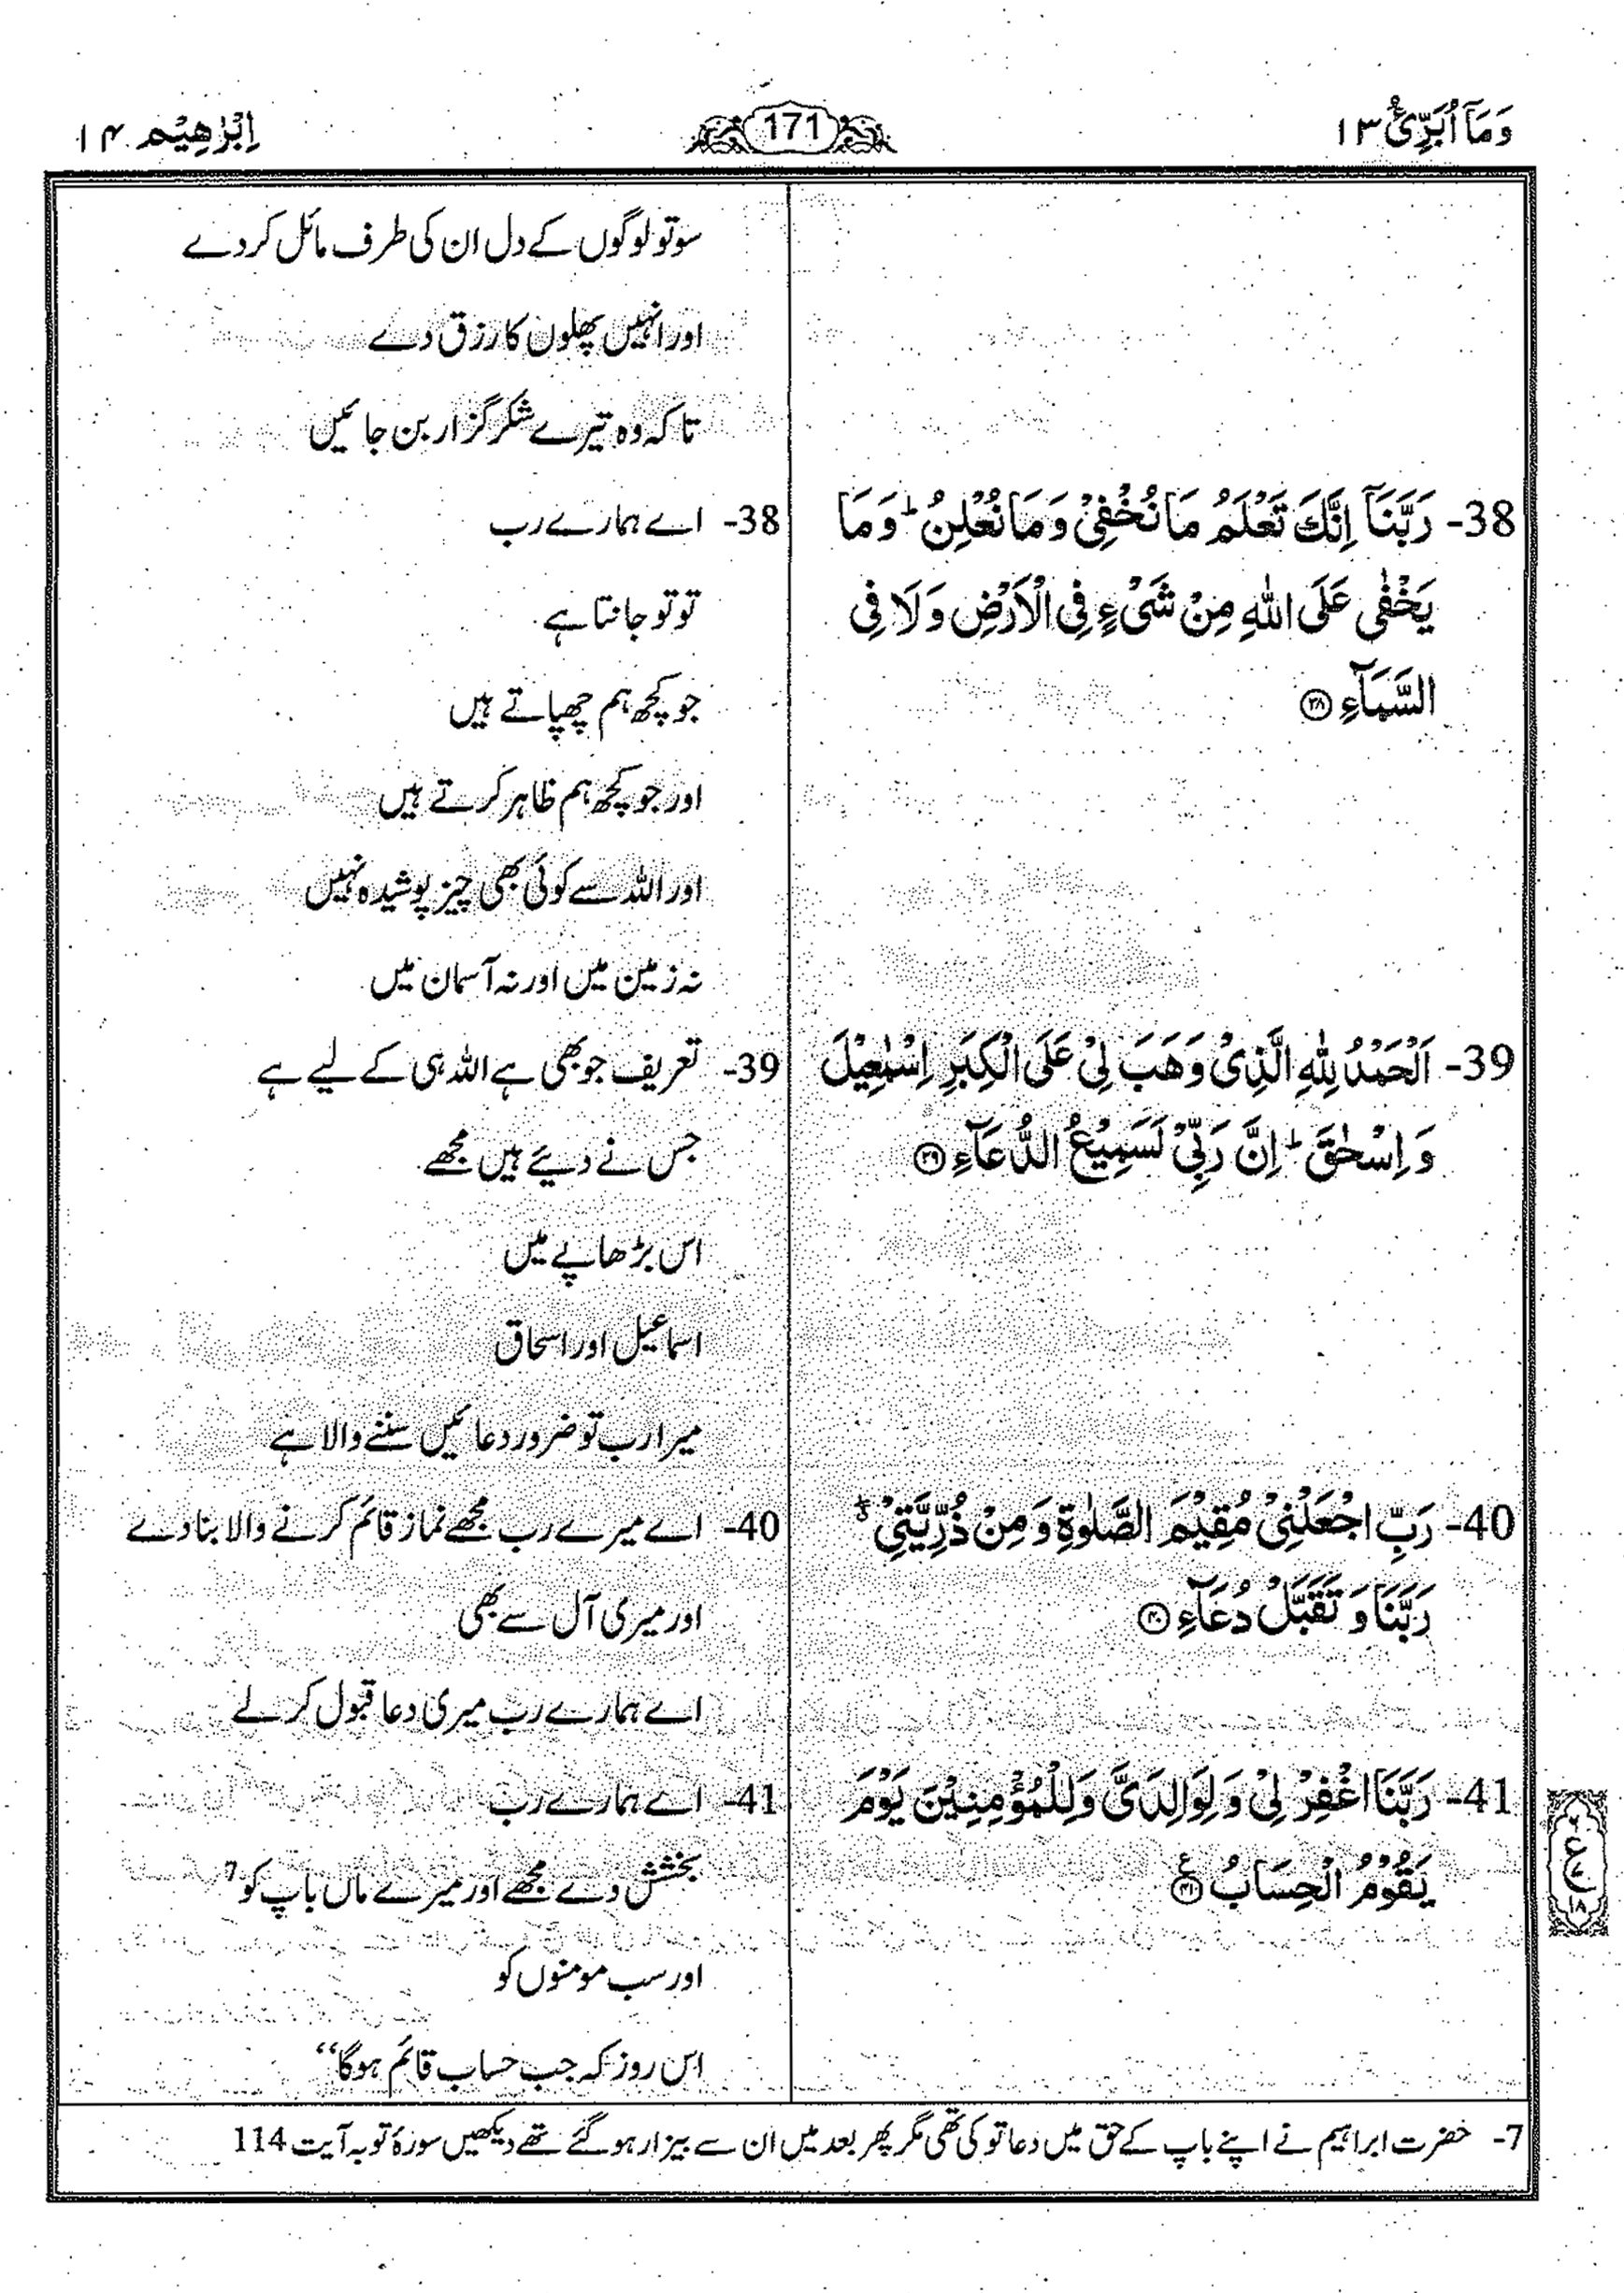 وَمَآ اُبَرِّئُ ۱۳
171
اِبْرٰهِيْم ۱۴
38- رَبَّنَآ اِنَّكَ تَعْلَمُ مَا نُخْفِيْ وَمَا نُعْلِنُ ؕ وَمَا
يَخْفٰى عَلَى اللّٰهِ مِنْ شَيْءٍ فِي الْاَرْضِ وَلَا فِي
السَّمَآءِ ۳۸
39- اَلْحَمْدُ لِلّٰهِ الَّذِيْ وَهَبَ لِيْ عَلَى الْكِبَرِ اِسْمٰعِيْلَ
وَ اِسْحٰقَ ؕ اِنَّ رَبِّيْ لَسَمِيْعُ الدُّعَآءِ ۳۹
40- رَبِّ اجْعَلْنِيْ مُقِيْمَ الصَّلٰوةِ وَ مِنْ ذُرِّيَّتِيْ ۖ
رَبَّنَا وَ تَقَبَّلْ دُعَآءِ ۴۰
41- رَبَّنَا اغْفِرْ لِيْ وَ لِوَالِدَيَّ وَلِلْمُؤْمِنِيْنَ يَوْمَ
يَقُوْمُ الْحِسَابُ ۴۱ ع
سو تو لوگوں کے دل ان کی طرف مائل کر دے
اور انہیں پھلوں کا رزق دے
تاکہ وہ تیرے شکر گزار بن جائیں
38- اے ہمارے رب
تو تو جانتا ہے
جو کچھ ہم چھپاتے ہیں
اور جو کچھ ہم ظاہر کرتے ہیں
اور اللہ سے کوئی بھی چیز پوشیدہ نہیں
نہ زمین میں اور نہ آسمان میں
39- تعریف جو بھی ہے اللہ ہی کے لیے ہے
جس نے دیئے ہیں مجھے
اس بڑھاپے میں
اسماعیل اور اسحاق
میرا رب تو ضرور دعائیں سننے والا ہے
40- اے میرے رب مجھے نماز قائم کرنے والا بنا دے
اور میری آل سے بھی
اے ہمارے رب میری دعا قبول کر لے
41- اے ہمارے رب
بخشش دے مجھے اور میرے ماں باپ کو 7
اور سب مومنوں کو
اس روز کہ جب حساب قائم ہوگا‘‘
ع
۱۸
7- حضرت ابراہیم نے اپنے باپ کے حق میں دعا تو کی تھی مگر پھر بعد میں ان سے بیزار ہو گئے تھے دیکھیں سورۂ توبہ آیت 114